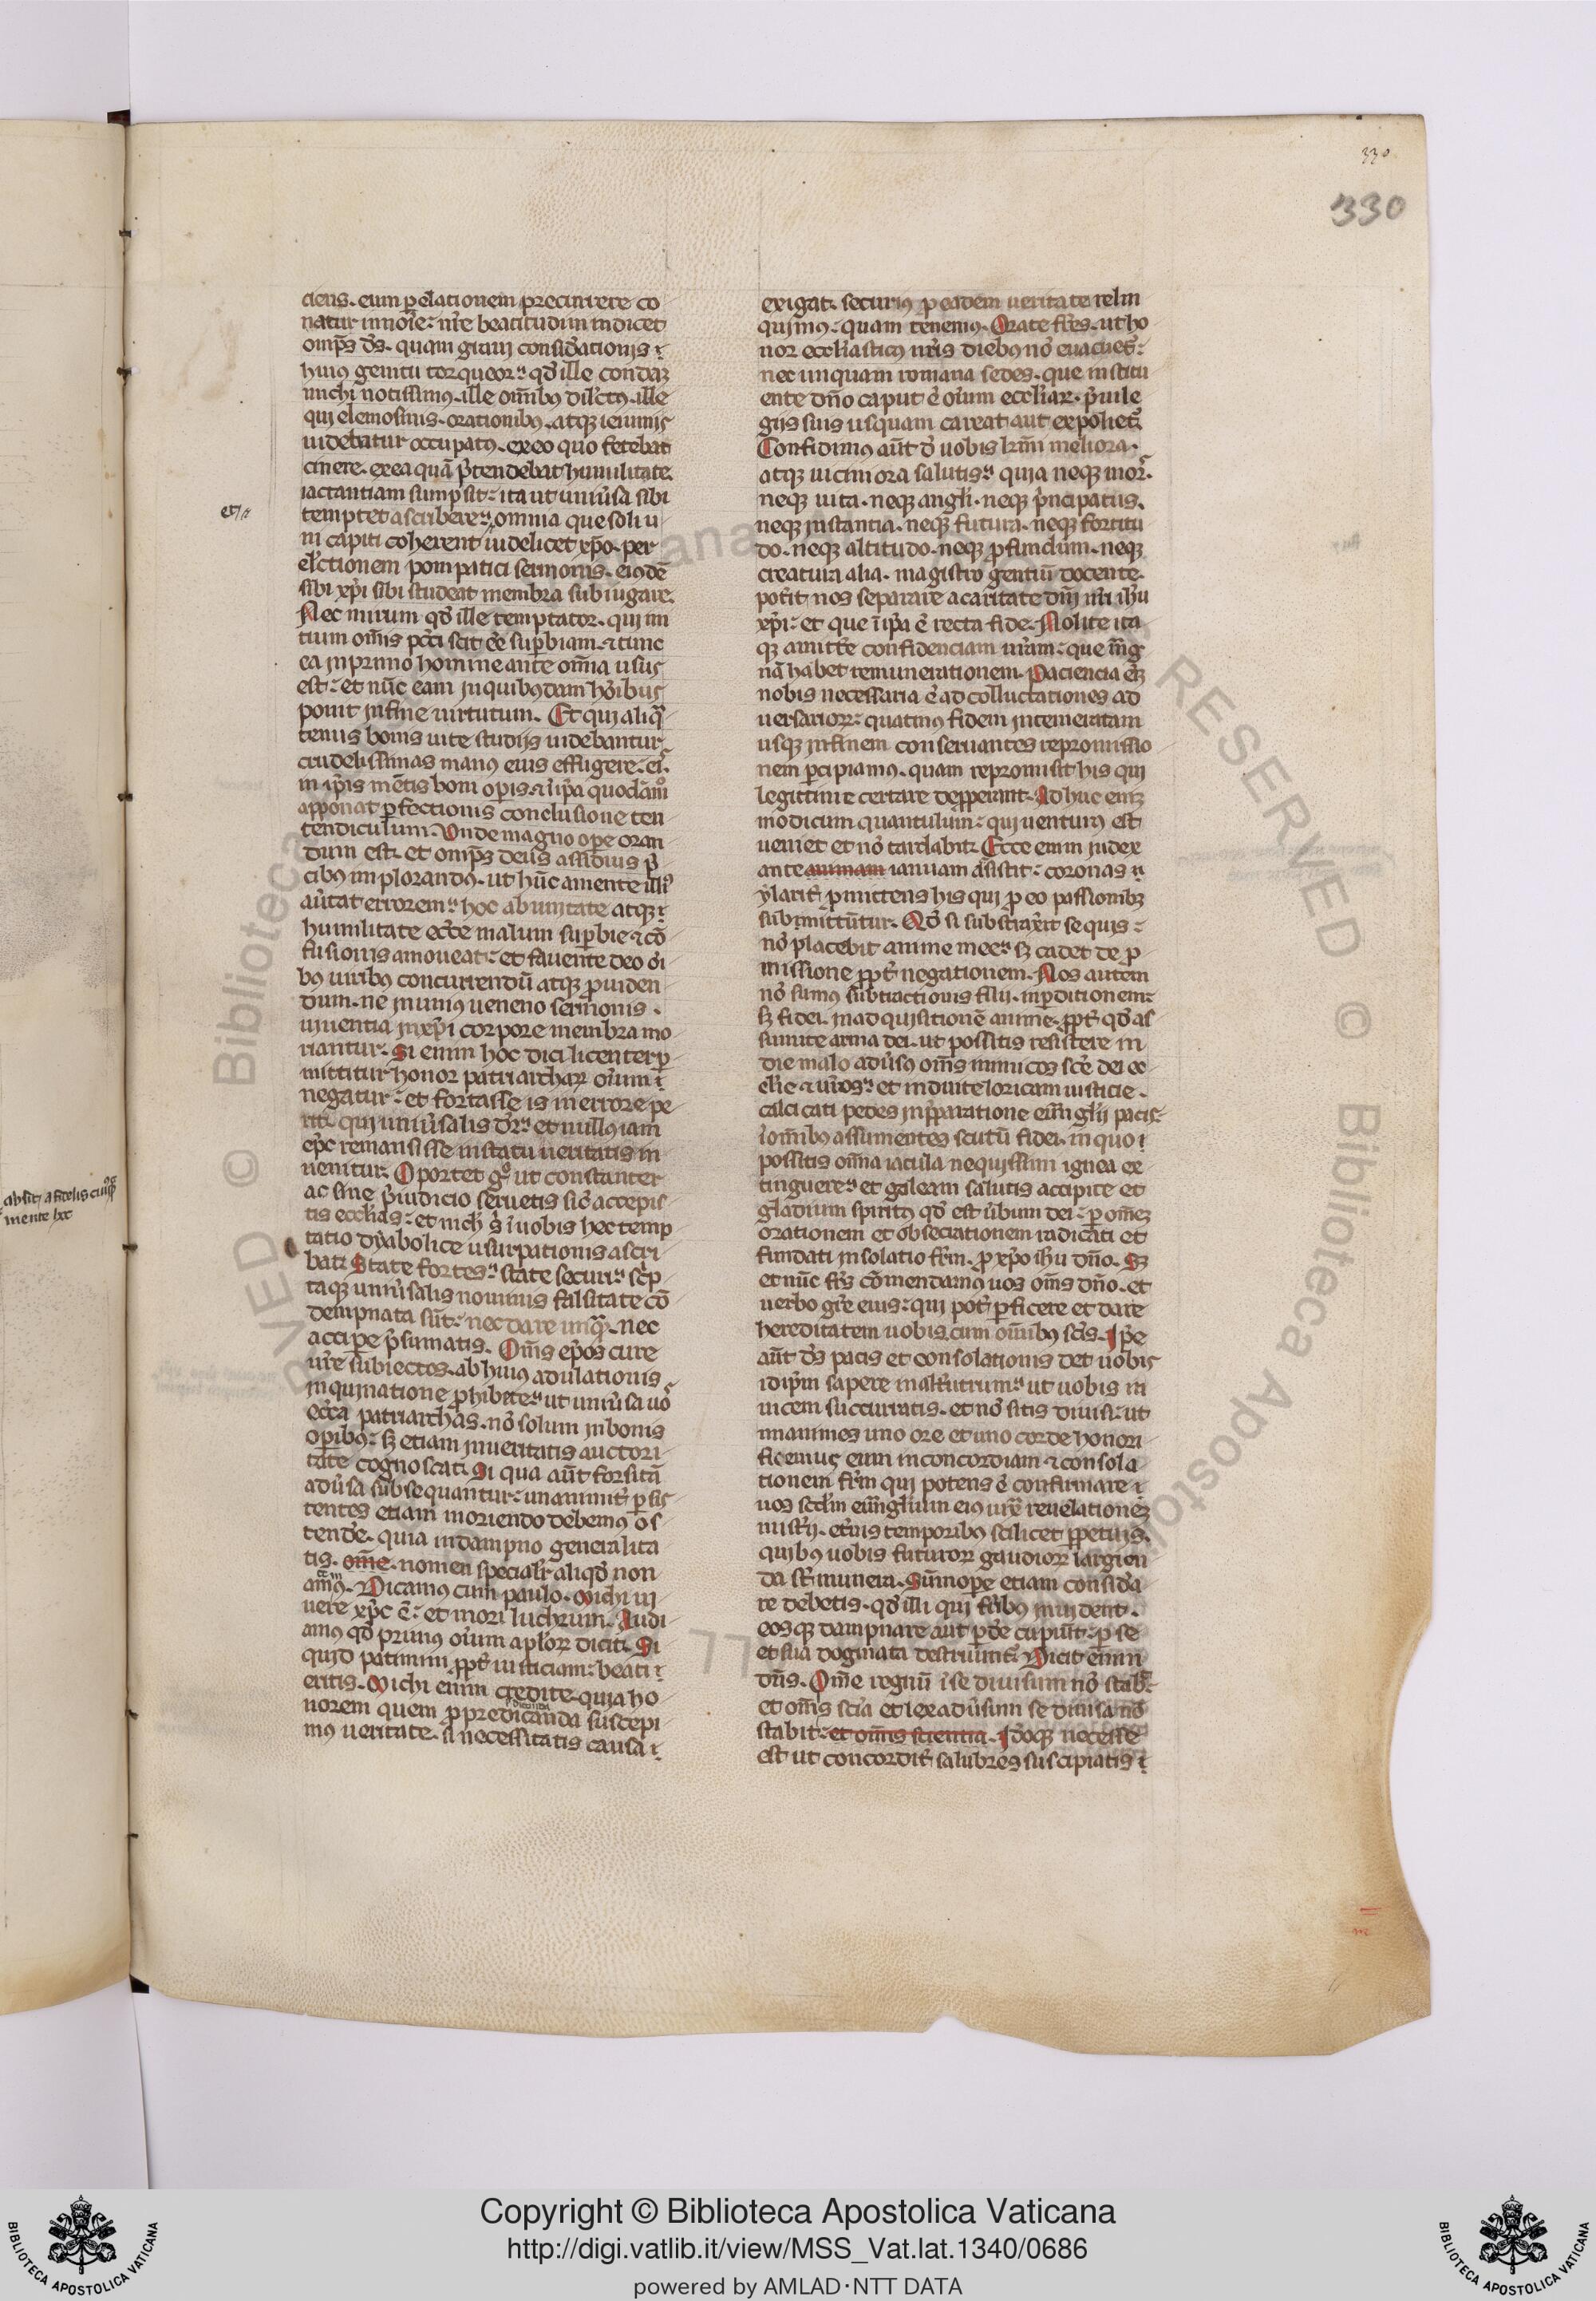 330
330
ciens. eum p elationem precinirere co
natur in noīe. nr̄e beatitudini indicet
omp̄s d̄s. quam grauī considātionis
huius gemitu torqueor. qd̄ ille condaȝ
michi notissimus. ille om̄ibus dilc̄tus. ille
qui elemosinis. orationibus. atqȝ ieiuniis
uidebatur occupatus. ex eo quo fetebat
cinere. ex ea quā p̄tendebat humilitate.
iactantiam sumpsit. ita ut uniūsa sibi
et
temptet ascribere. omnia que soli u
ni capiti coherent uidelicet xp̄o. per
elc̄tionem pompatici sermonis. eiusdē
sibi xp̄i sibi studeat membra subiugare.
Nec mirum qd̄ ille temptator. qui ini
tium om̄is pcc̄i scit eē sup̄biam. ⁊ tunc
ea in primo homine ante om̄ia usus
est. et nūc eam in quibusdam hoībus
ponit in fine uirtutum. Et qui aliq̄
tenus bonis uite studiis uidebantur
crudelissimas manus eius effugere. ei
in ip̄is mētis boni op̄is. ⁊ ī ip̄a quodām̊
apponat p fectionis conclusione ten
tendiculum. Unde magno ope oran
dum est. et omp̄s deus assiduis p̄
cibus implorandus. ut hūc a mente illi
aūtat errorem. hoc ab unitate atqȝ
humilitate eccl̄e malum sup̄bie ⁊ cō
fusionis amoueat. et fauente deo oī
bus uiribus concurrendū atqȝ p uiden
dum. ne in unius ueneno sermonis.
uiuentia in xp̄i corpore membra mo
riantur. Si enim hoc dici licenter p
mittitur honor patriarchar̄ oīum
negatur. et fortasse is in errore pe
rit. qui uniūsalis dr̄. et nullus iam
ep̄c remansisse in statu ueritatis in
uenitur. Oportet g̊ ut constanter
ac sine p̄iudicio seruetis sic̄ accepis
tis eccl̄ias. et nich̄ s̄ ī uobis hec temp
tatio dyabolice usurpationis ascri
bat. State fortes. state securi. sc̄p
taqȝ uniūsalis nominis falsitate cō
dempnata sūt. nec dare unq̄. nec
accipe p̄sumatis. Om̄s ep̄os cure
ur̄e subiectos. ab huius adulationis
inquinatione p hibete. ut uniūsa uos
ecc̄a patriarchas. nō solum in bonis
op̄ibus. sȝ etiam in ueritatis auctori
tate cognoscat. Si qua aūt forsitā
adūsa subsequantur. unanimit̄ p sis
tentes etiam moriendo debemus os
tende. quia in dampno generalita
tis. om̄e. nomen specialr̄ aliqd̄ non
amus. Dicamus cum paulo. Michi ui
uere xp̄c ē. et mori luchrum. Audi
amus qd̄ primus oīum apl̄or̄ dicit. Si
quid patimini p̄p̄t iusticiam. beati
eritis. Michi enim credite. quia ho
norem quem p predicanda suscepi
mus ueritate. si necessitatis causa
exigat. securius p eadem ueritate relin
quimus. quam tenemus. Orate fr̄es. ut ho
nor eccl̄iasticus nr̄is diebus nō euacuet̄.
nec unquam romana sedes. que institu
ente dn̄o caput ē oīum eccl̄iar. p̄uile
giis suis usquam careat aut expoliet̄.
Confidimus aūt d̄ uobis kr̄mi meliora.
atqȝ uiciniora salutis. quia neqȝ mors.
neqȝ uita. neqȝ angl̄i. neqȝ p̄ncipatus.
neqȝ instantia. neqȝ futura. neqȝ fortitu
do. neqȝ altitudo. neqȝ p fundum. neqȝ
creatura alia. magistro gentiū docente.
pot̄it nos separare a caritate dn̄i nr̄i ih̄u
xp̄i. et que ī ip̄a ē recta fide. Nolite ita
qȝ amitt̄e confidenciam ur̄am. que m̄g
nā habet remunerationem. Paciencia eīȝ
nobis necessaria ē ad colluctationes ad
uersarior̄. quatinus fidem intemeratam
usqȝ in finem conseruantes repromissio
nem p cipiamus. quam repromisit his qui
legittime certare dep̄perint. Adhuc enīȝ
modicum quantulum. qui uenturus est
ueniet et nō tardabit. Ecce enim iudex
ante animam ianuam assistit. coronas
ylarit̄ p mittens his qui p eo passionibȝ
submittūtur. Qd̄ si substrax̄it se quis.
nō placebit anime mee. sȝ cadet de p
missione p̄p̄t negationem. Nos autem
nō sumus subtractionis filii. in p ditionem.
sȝ fidei. in adquisitionē anime. p̄p̄t qd̄ as
sumite arma dei. ut possitis resistere in
die malo adūsus om̄s inimicos sc̄e dei ec
cl̄ie ⁊ ur̄os. et induite loricam iusticie.
calciati pedes in p̄paratione euāngl̄ii pacis.
ī om̄ibus assumentes scutū fidei. in quo
possitis om̄ia iacula nequissimi ignea ex
tinguere. et galeam salutis accipite et
gladium spiritus qd̄ est ūbum dei. p om̄eȝ
orationem et obsecrationem radicati et
fundati in solatio fr̄m. p xp̄o ih̄u dn̄o. Sȝ
et nūc fr̄s cōmendamus uos om̄s dn̄o. et
uerbo gr̄e eius. qui pot̄ p ficere et dare
hereditatem uobis cum om̄ibus sc̄is. Ip̄e
aūt d̄s pacis et consolationis det uobis
idip̄m sapere in alt̄utrum. ut uobis in
uicem succurratis. et nō sitis diuisi. ut
unanimes uno ore et uno corde honori
ficemus eum in concordiam ⁊ consola
tionem fr̄m qui potens ē confirmare
uos scd̄m euāngl̄ium eius iux̄ reuelationeȝ
mist̄ii. et̄nis temporibus scilicet p̄petuis.
quibus uobis futuror̄ gaudior̄ largien
da sūt munera. Sūmope etiam considā
re debetis. qd̄ illi qui fr̄ibus inuident.
eosqȝ dampnare aut p d̄e cupiūt. p se
et sua dogmata destruūnt̄. Dicit enim
dn̄s. Om̄e regnū ī se diuisum nō stabit
et om̄is scīa et lex adūsum se diuisa nō
stabit. et om̄is scientia. Idoqȝ necesse
est ut concordit̄ salubres suscipiatis
Copyright © Biblioteca Apostolica Vaticana
http://digi.vatlib.it/view/MSS_Vat.lat.1340/0686
powered by AMLAD·NTT DATA